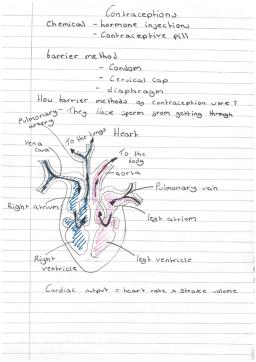 Contraceptions
Chemical - hormone injections
- Contraceptive pill
barrier method
- Condom
- Cervical cap
- diaphragm
How barrier methods of contraception work?
- They lock sperm from getting through
Pulmonary artery
To the lungs
Heart
Vena cava
To the body
aorta
Pulmonary vein
Right atrium
left atrium
Right ventricle
left ventricle
Cardiac output = heart rate x stroke volume